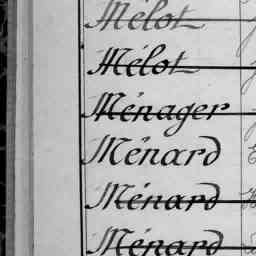 Mélot
Mélot
Ménager
Ménard
Ménard
Ménard